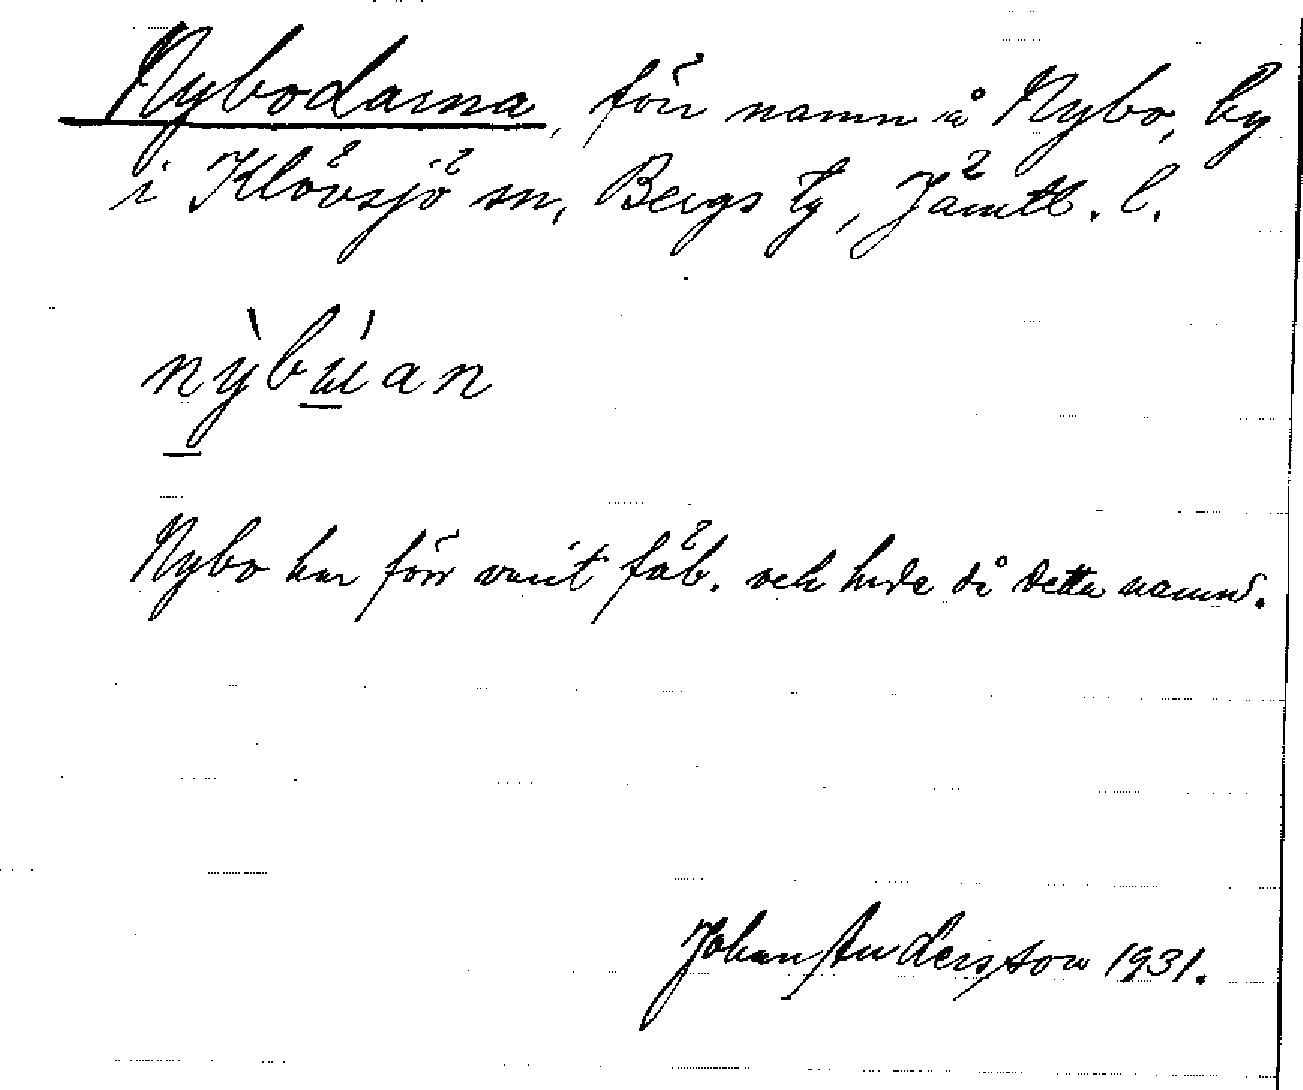 Nybodarna, förr namn å Nybo, by
i Klövsjö sn, Bergs tg, Jämtl. l.
nỳbúan
Nybo har förr varit fäb. och hade då detta namn.
Johan Andersson 1931.